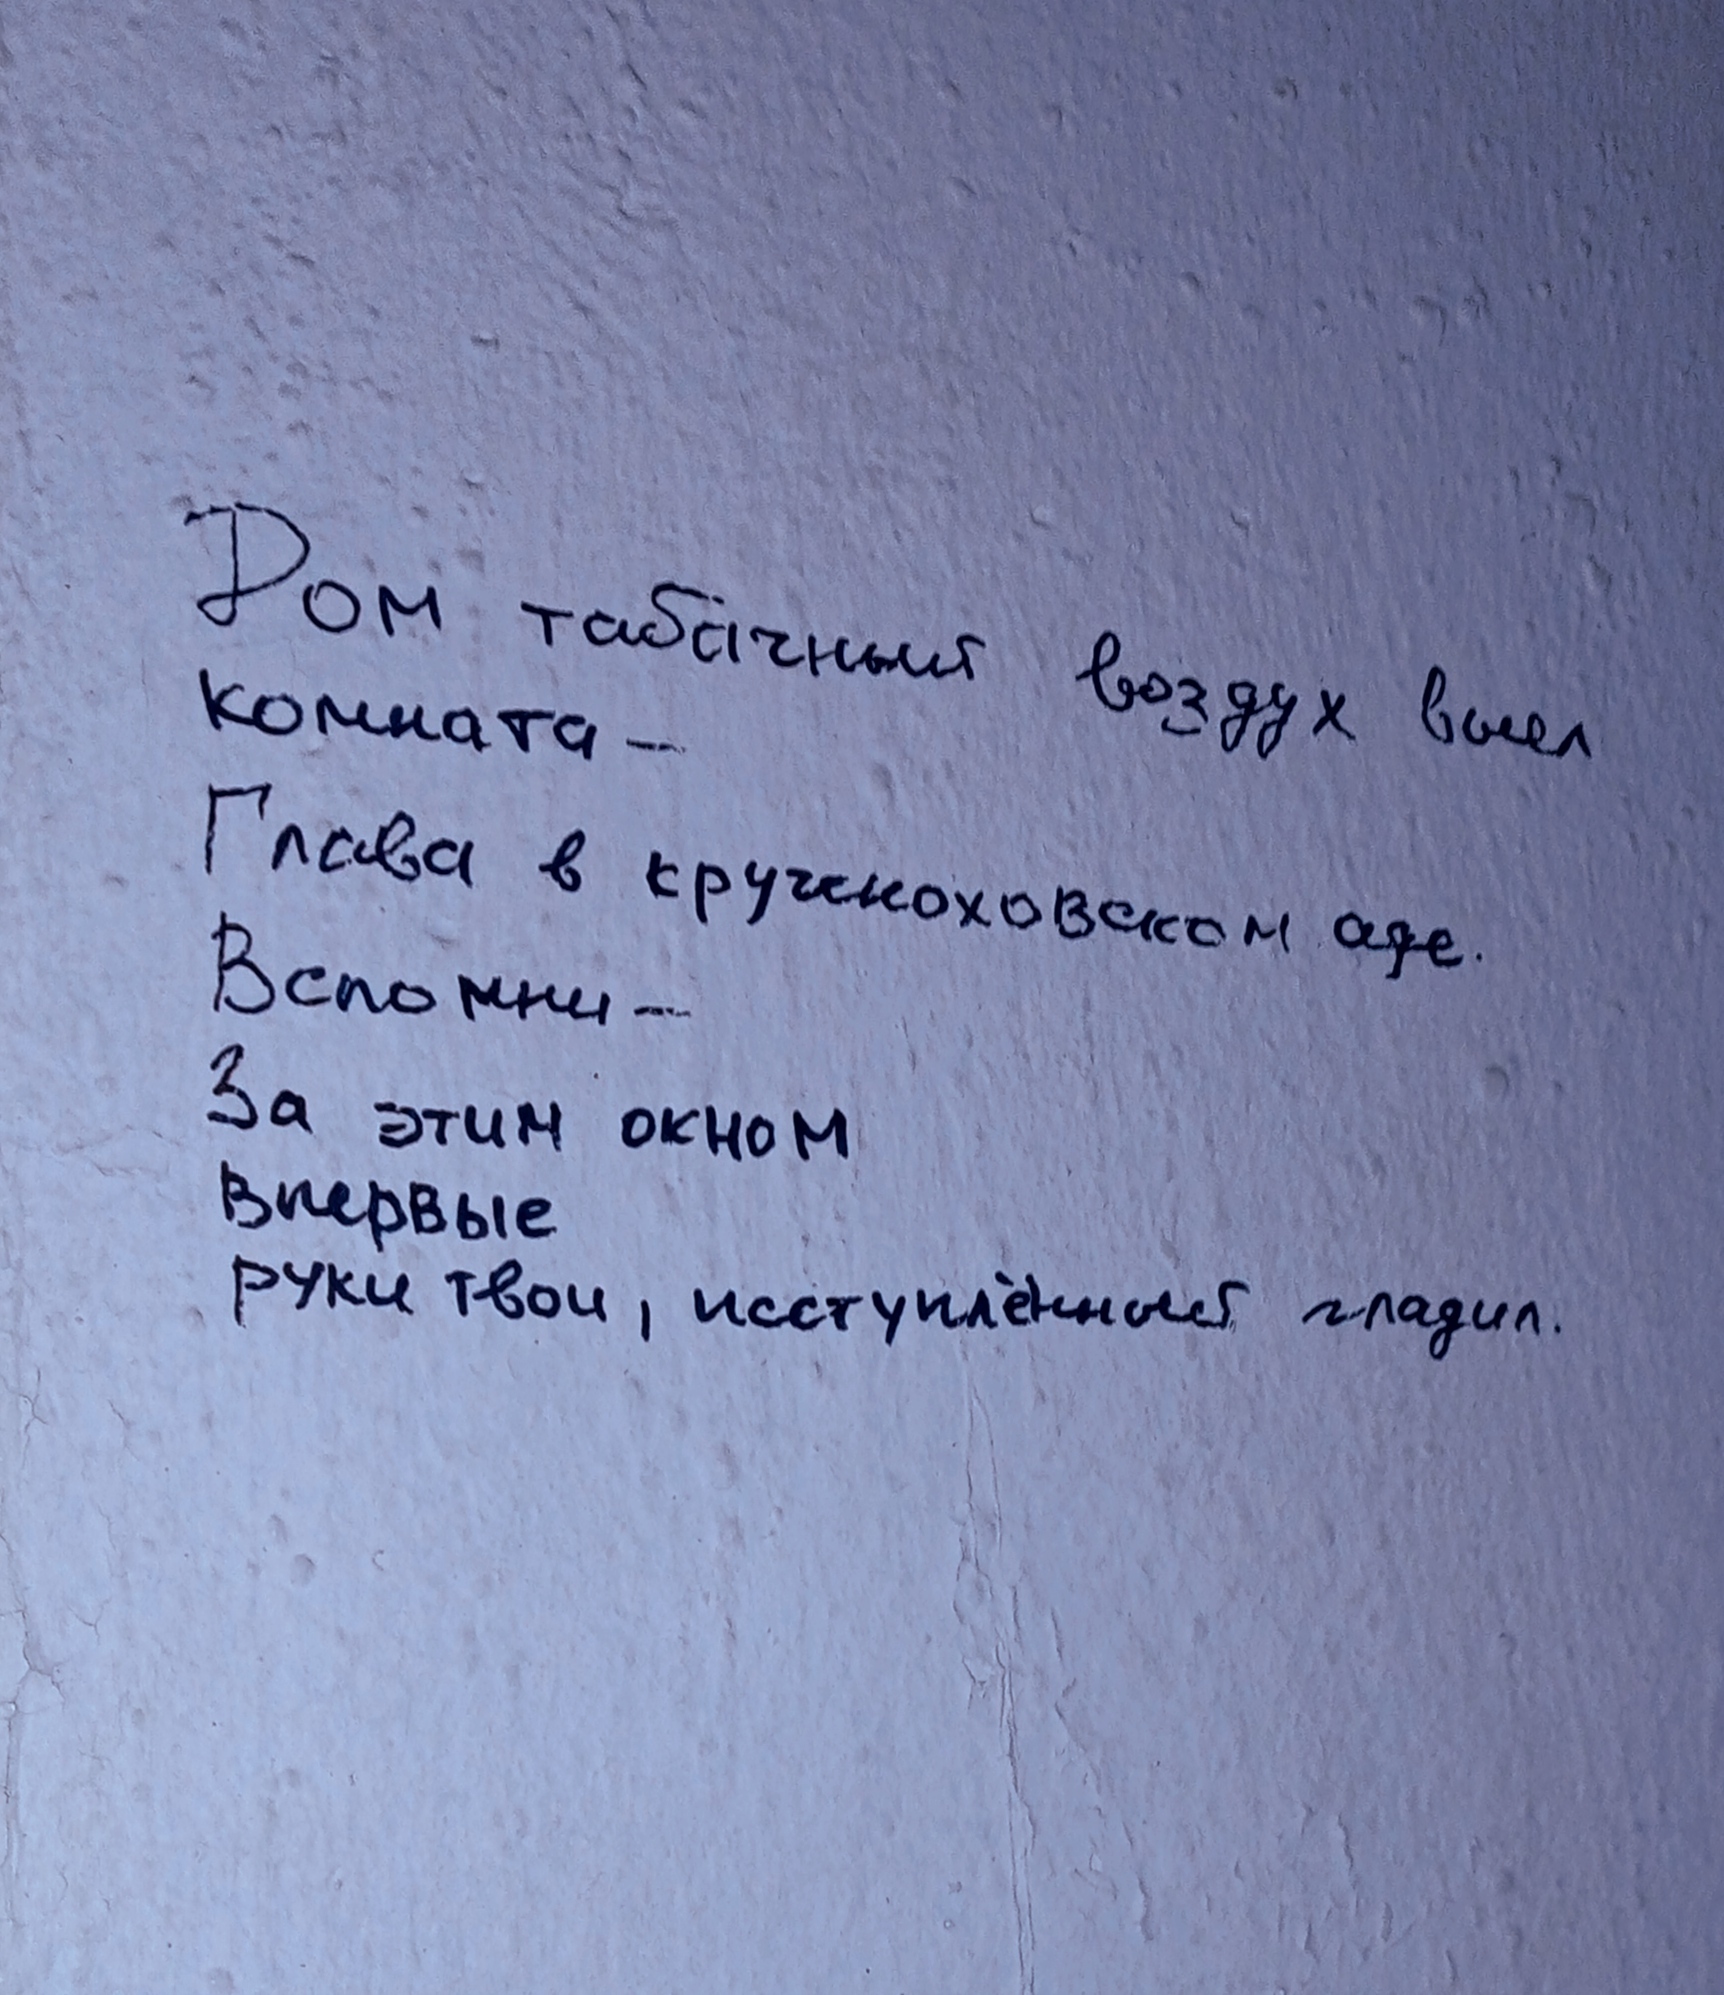 Дом табачный воздух выел
комната –
Глава в крученоховском аде.
Вспомни –
За этим окном
впервые
руки твои, исступлённый гладил.